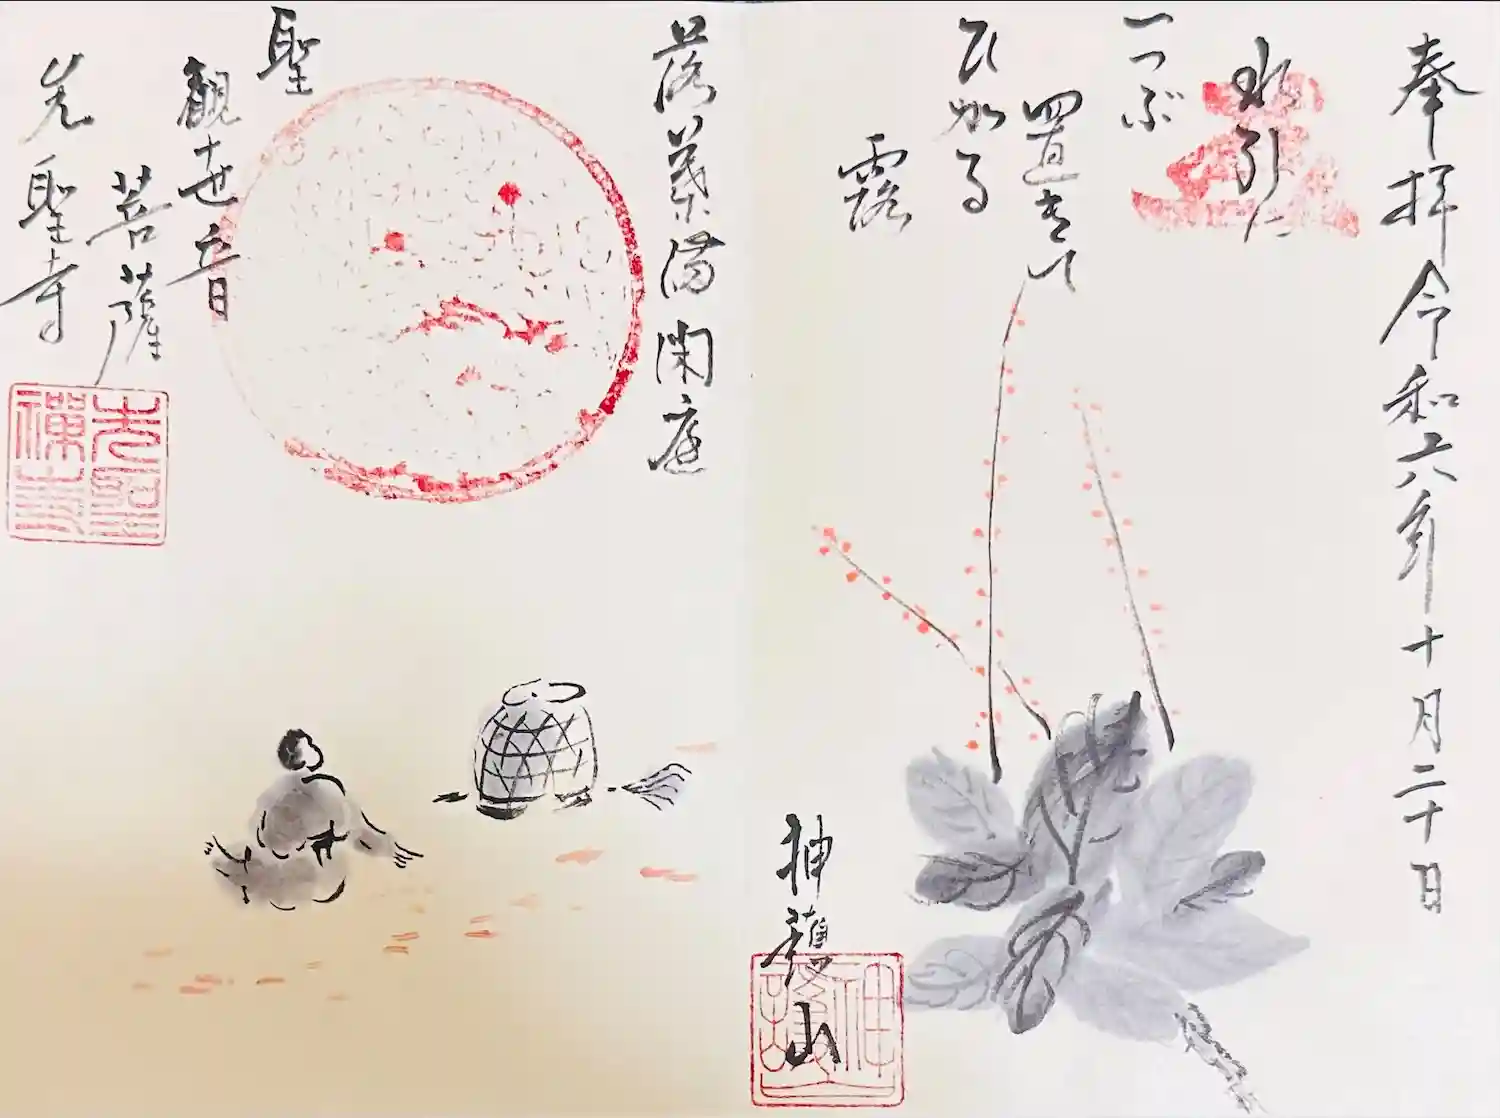 奉拝 令和六年十月二十日
水引に
一つぶ
置きて
ひかる
露
神護山
落葉満閑庭
聖
観世音
菩薩
先聖寺